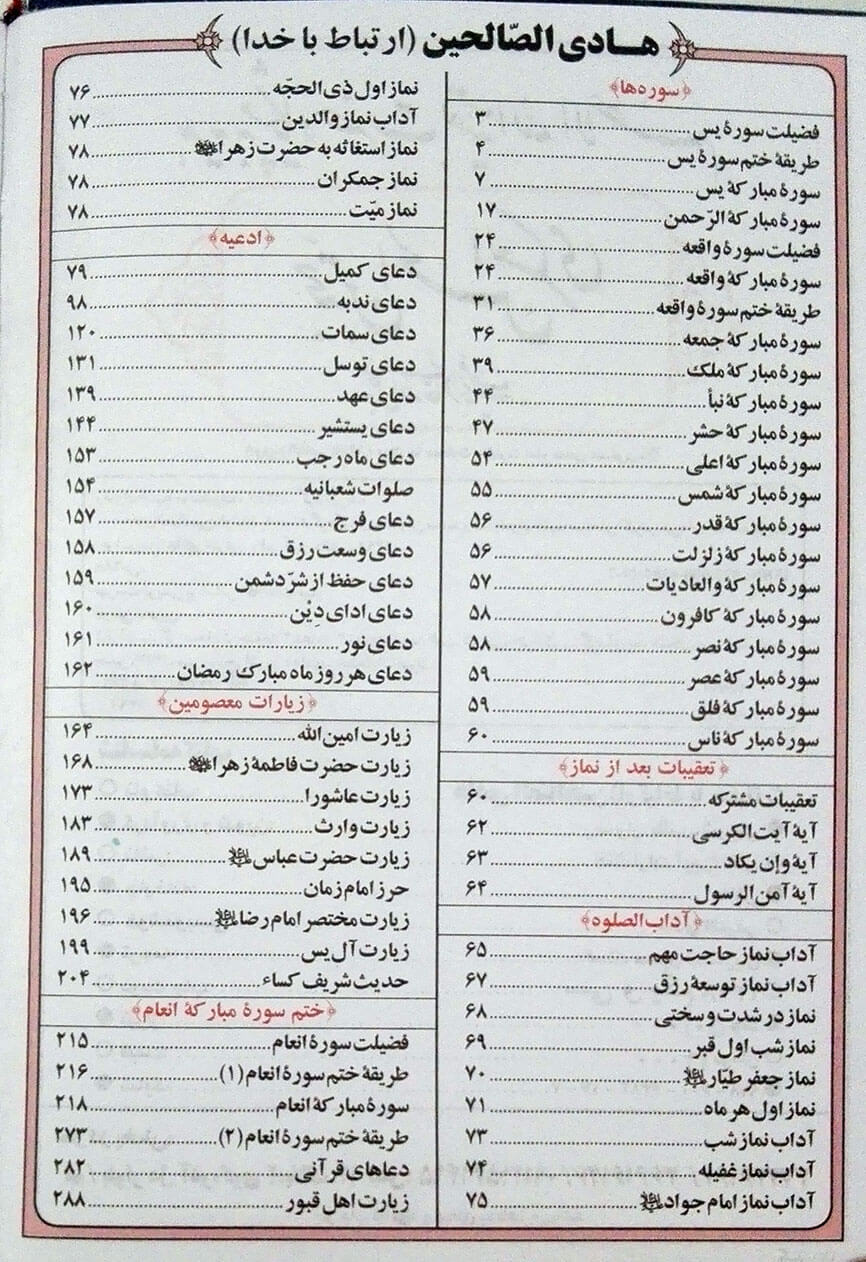 هادی الصّالحین (ارتباط با خدا)
﴿سوره‌ها﴾
فضیلت سورهٔ یس ... ۳
طریقهٔ ختم سورهٔ یس ... ۴
سورهٔ مبارکهٔ یس ... ۷
سورهٔ مبارکهٔ الرّحمن ... ۱۷
فضیلت سورهٔ واقعه ... ۲۴
سورهٔ مبارکهٔ واقعه ... ۲۴
طریقهٔ ختم سورهٔ واقعه ... ۳۱
سورهٔ مبارکهٔ جمعه ... ۳۶
سورهٔ مبارکهٔ ملک ... ۳۹
سورهٔ مبارکهٔ نبأ ... ۴۴
سورهٔ مبارکهٔ حشر ... ۴۷
سورهٔ مبارکهٔ اعلی ... ۵۴
سورهٔ مبارکهٔ شمس ... ۵۵
سورهٔ مبارکهٔ قدر ... ۵۶
سورهٔ مبارکهٔ زلزلت ... ۵۶
سورهٔ مبارکهٔ والعادیات ... ۵۷
سورهٔ مبارکهٔ کافرون ... ۵۸
سورهٔ مبارکهٔ نصر ... ۵۸
سورهٔ مبارکهٔ عصر ... ۵۹
سورهٔ مبارکهٔ فلق ... ۵۹
سورهٔ مبارکهٔ ناس ... ۶۰
﴿تعقیبات بعد از نماز﴾
تعقیبات مشترکه ... ۶۰
آیهٔ آیت الکرسی ... ۶۲
آیهٔ وإن یکاد ... ۶۳
آیهٔ آمن الرسول ... ۶۴
﴿آداب الصلوه﴾
آداب نماز حاجت مهم ... ۶۵
آداب نماز توسعهٔ رزق ... ۶۷
نماز در شدت و سختی ... ۶۸
نماز شب اول قبر ... ۶۹
نماز جعفر طیّار علیه‌السلام ... ۷۰
نماز اول هر ماه ... ۷۱
آداب نماز شب ... ۷۳
آداب نماز غفیله ... ۷۴
آداب نماز امام جواد علیه‌السلام ... ۷۵
نماز اول ذی الحجّه ... ۷۶
آداب نماز والدین ... ۷۷
نماز استغاثه به حضرت زهرا ... ۷۸
نماز جمکران ... ۷۸
نماز میّت ... ۷۸
﴿ادعیه﴾
دعای کمیل ... ۷۹
دعای ندبه ... ۹۸
دعای سمات ... ۱۲۰
دعای توسل ... ۱۳۱
دعای عهد ... ۱۳۹
دعای یستشیر ... ۱۴۴
دعای ماه رجب ... ۱۵۳
صلوات شعبانیه ... ۱۵۴
دعای فرج ... ۱۵۷
دعای وسعت رزق ... ۱۵۸
دعای حفظ از شرّ دشمن ... ۱۵۹
دعای ادای دِیْن ... ۱۶۰
دعای نور ... ۱۶۱
دعای هر روز ماه مبارک رمضان ... ۱۶۲
﴿زیارات معصومین﴾
زیارت امین الله ... ۱۶۴
زیارت حضرت فاطمهٔ زهرا ... ۱۶۸
زیارت عاشورا ... ۱۷۳
زیارت وارث ... ۱۸۳
زیارت حضرت عباس علیه‌السلام ... ۱۸۹
حرز امام زمان ... ۱۹۵
زیارت مختصر امام رضا علیه‌السلام ... ۱۹۶
زیارت آل یس ... ۱۹۹
حدیث شریف کساء ... ۲۰۴
﴿ختم سورهٔ مبارکهٔ انعام﴾
فضیلت سورهٔ انعام ... ۲۱۵
طریقهٔ ختم سورهٔ انعام (۱) ... ۲۱۶
سورهٔ مبارکهٔ انعام ... ۲۱۸
طریقهٔ ختم سورهٔ انعام (۲) ... ۲۷۳
دعاهای قرآنی ... ۲۸۲
زیارت اهل قبور ... ۲۸۸